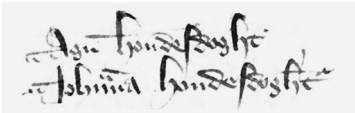 Agn hondesdoght
Johnna hondesdoght